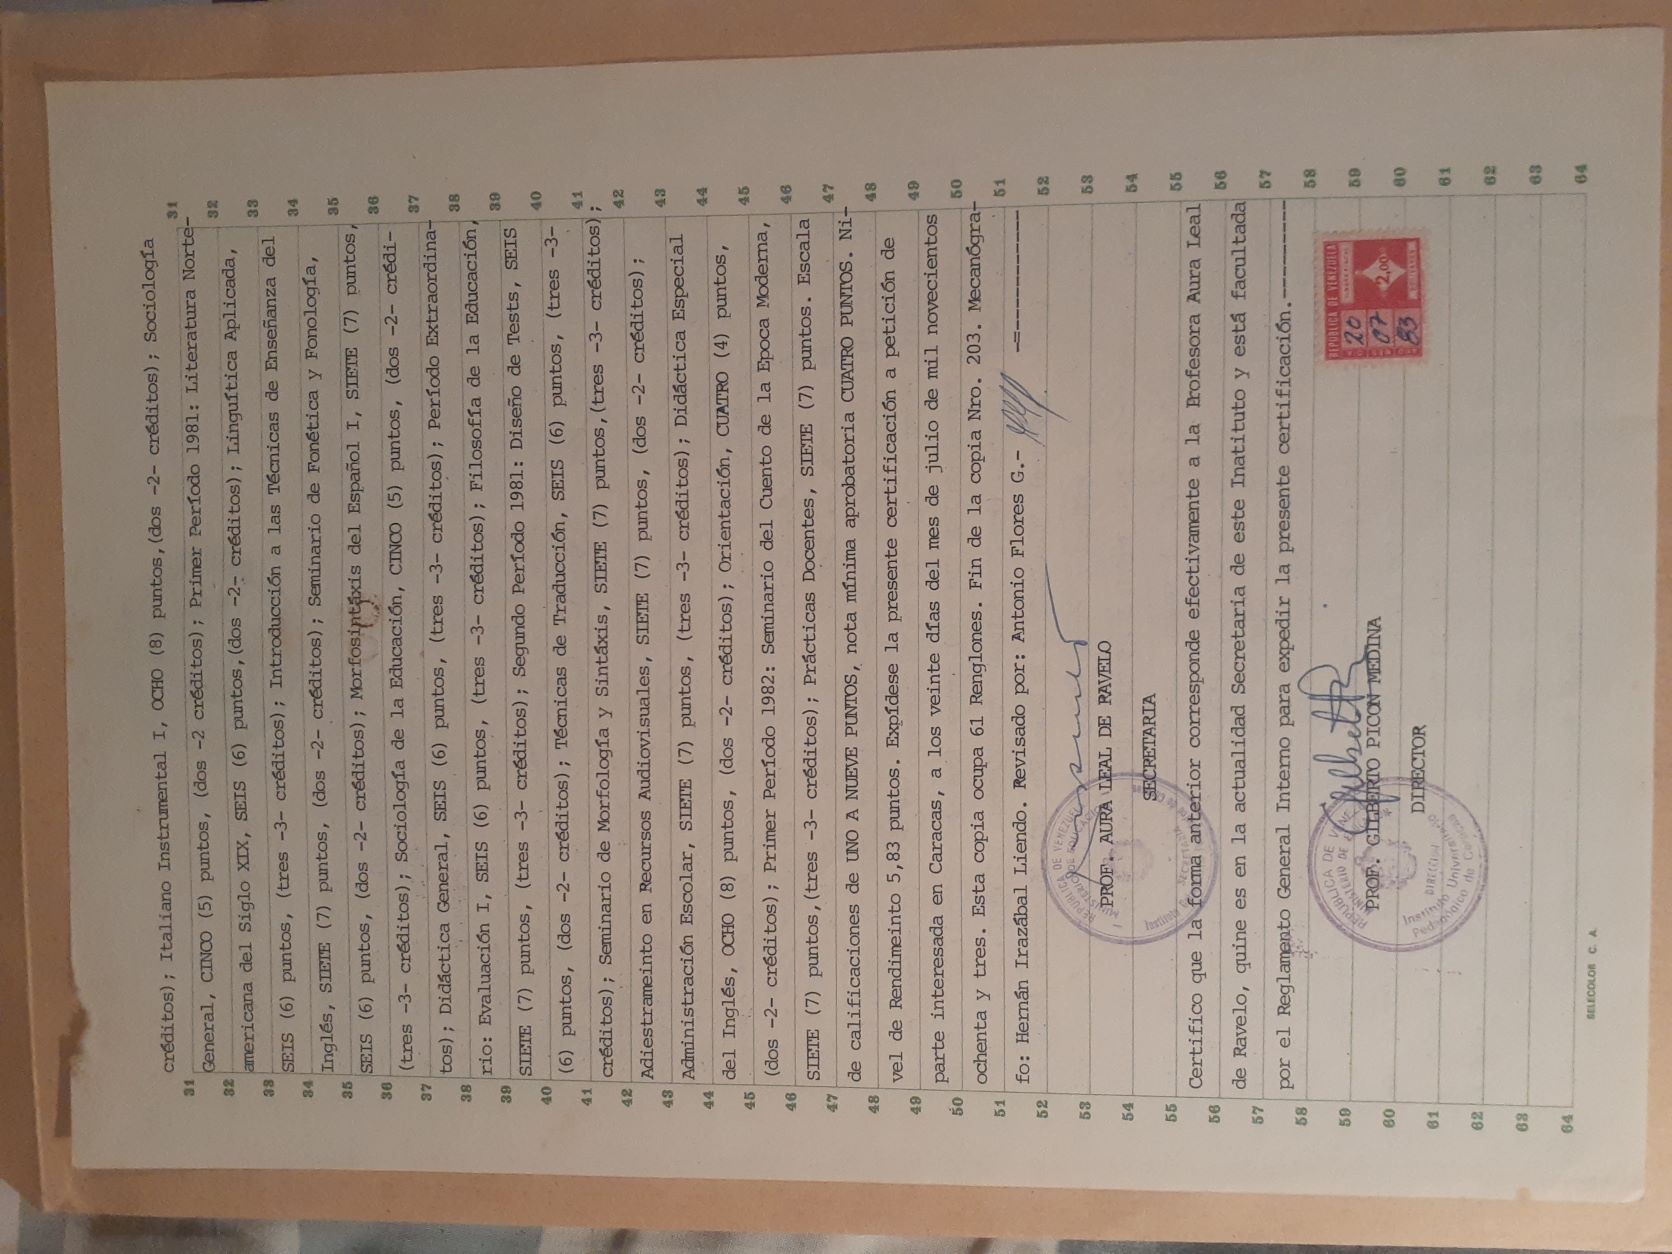 créditos); Italiano Instrumental I, OCHO (8) puntos,(dos -2- créditos); Sociología
31 31
General, CINCO (5) puntos, (dos -2 créditos); Primer Período 1981: Literatura Norte-
32 32
americana del Siglo XIX, SEIS (6) puntos,(dos -2- créditos); Linguítica Aplicada,
33 33
SEIS (6) puntos, (tres -3- créditos); Introducción a las Técnicas de Enseñanza del
34 34
Inglés, SIETE (7) puntos, (dos -2- créditos); Seminario de Fonética y Fonología,
35 35
SEIS (6) puntos, (dos -2- créditos); Morfosintáxis del Español I, SIETE (7) puntos,
36 36
(tres -3- créditos); Sociología de la Educación, CINCO (5) puntos, (dos -2- crédi-
37 37
tos); Didáctica General, SEIS (6) puntos, (tres -3- créditos); Período Extraordina-
38 38
rio: Evaluación I, SEIS (6) puntos, (tres -3- créditos); Filosofía de la Educación,
39 39
SIETE (7) puntos, (tres -3- créditos); Segundo Período 1981: Diseño de Tests, SEIS
40 40
(6) puntos, (dos -2- créditos); Técnicas de Traducción, SEIS (6) puntos, (tres -3-
41 41
créditos); Seminario de Morfología y Sintáxis, SIETE (7) puntos,(tres -3- créditos);
42 42
Adiestrameinto en Recursos Audiovisuales, SIETE (7) puntos, (dos -2- créditos);
43 43
Administración Escolar, SIETE (7) puntos, (tres -3- créditos); Didáctica Especial
44 44
del Inglés, OCHO (8) puntos, (dos -2- créditos); Orientación, CUATRO (4) puntos,
45 45
(dos -2- créditos); Primer Período 1982: Seminario del Cuento de la Epoca Moderna,
46 46
SIETE (7) puntos,(tres -3- créditos); Prácticas Docentes, SIETE (7) puntos. Escala
47 47
de calificaciones de UNO A NUEVE PUNTOS, nota mínima aprobatoria CUATRO PUNTOS. Ni-
48 48
vel de Rendimeinto 5,83 puntos. Expídese la presente certificación a petición de
49 49
parte interesada en Caracas, a los veinte días del mes de julio de mil novecientos
50 50
ochenta y tres. Esta copia ocupa 61 Renglones. Fin de la copia Nro. 203. Mecanógra-
51 51
fo: Hernán Irazábal Liendo. Revisado por: Antonio Flores G.- -=-----------
52 52
53 53
PROF. AURA LEAL DE RAVELO
54 54
SECRETARIA
55 55
Certifico que la forma anterior corresponde efectivamente a la Profesora Aura Leal
56 56
de Ravelo, quine es en la actualidad Secretaria de este Inatituto y está facultada
57 57
por el Reglamento General Interno para expedir la presente certificación.----------
58 58
REPUBLICA DE VENEZUELA
20
07
83
2,00
59 59
PROF. GILBERTO PICON MEDINA
60 60
DIRECTOR
61 61
62 62
63 63
64 64
REPUBLICA DE VENEZUELA
DIRECCION
Instituto Universitario
Pedagógico de Caracas
SELECOLOR C. A.